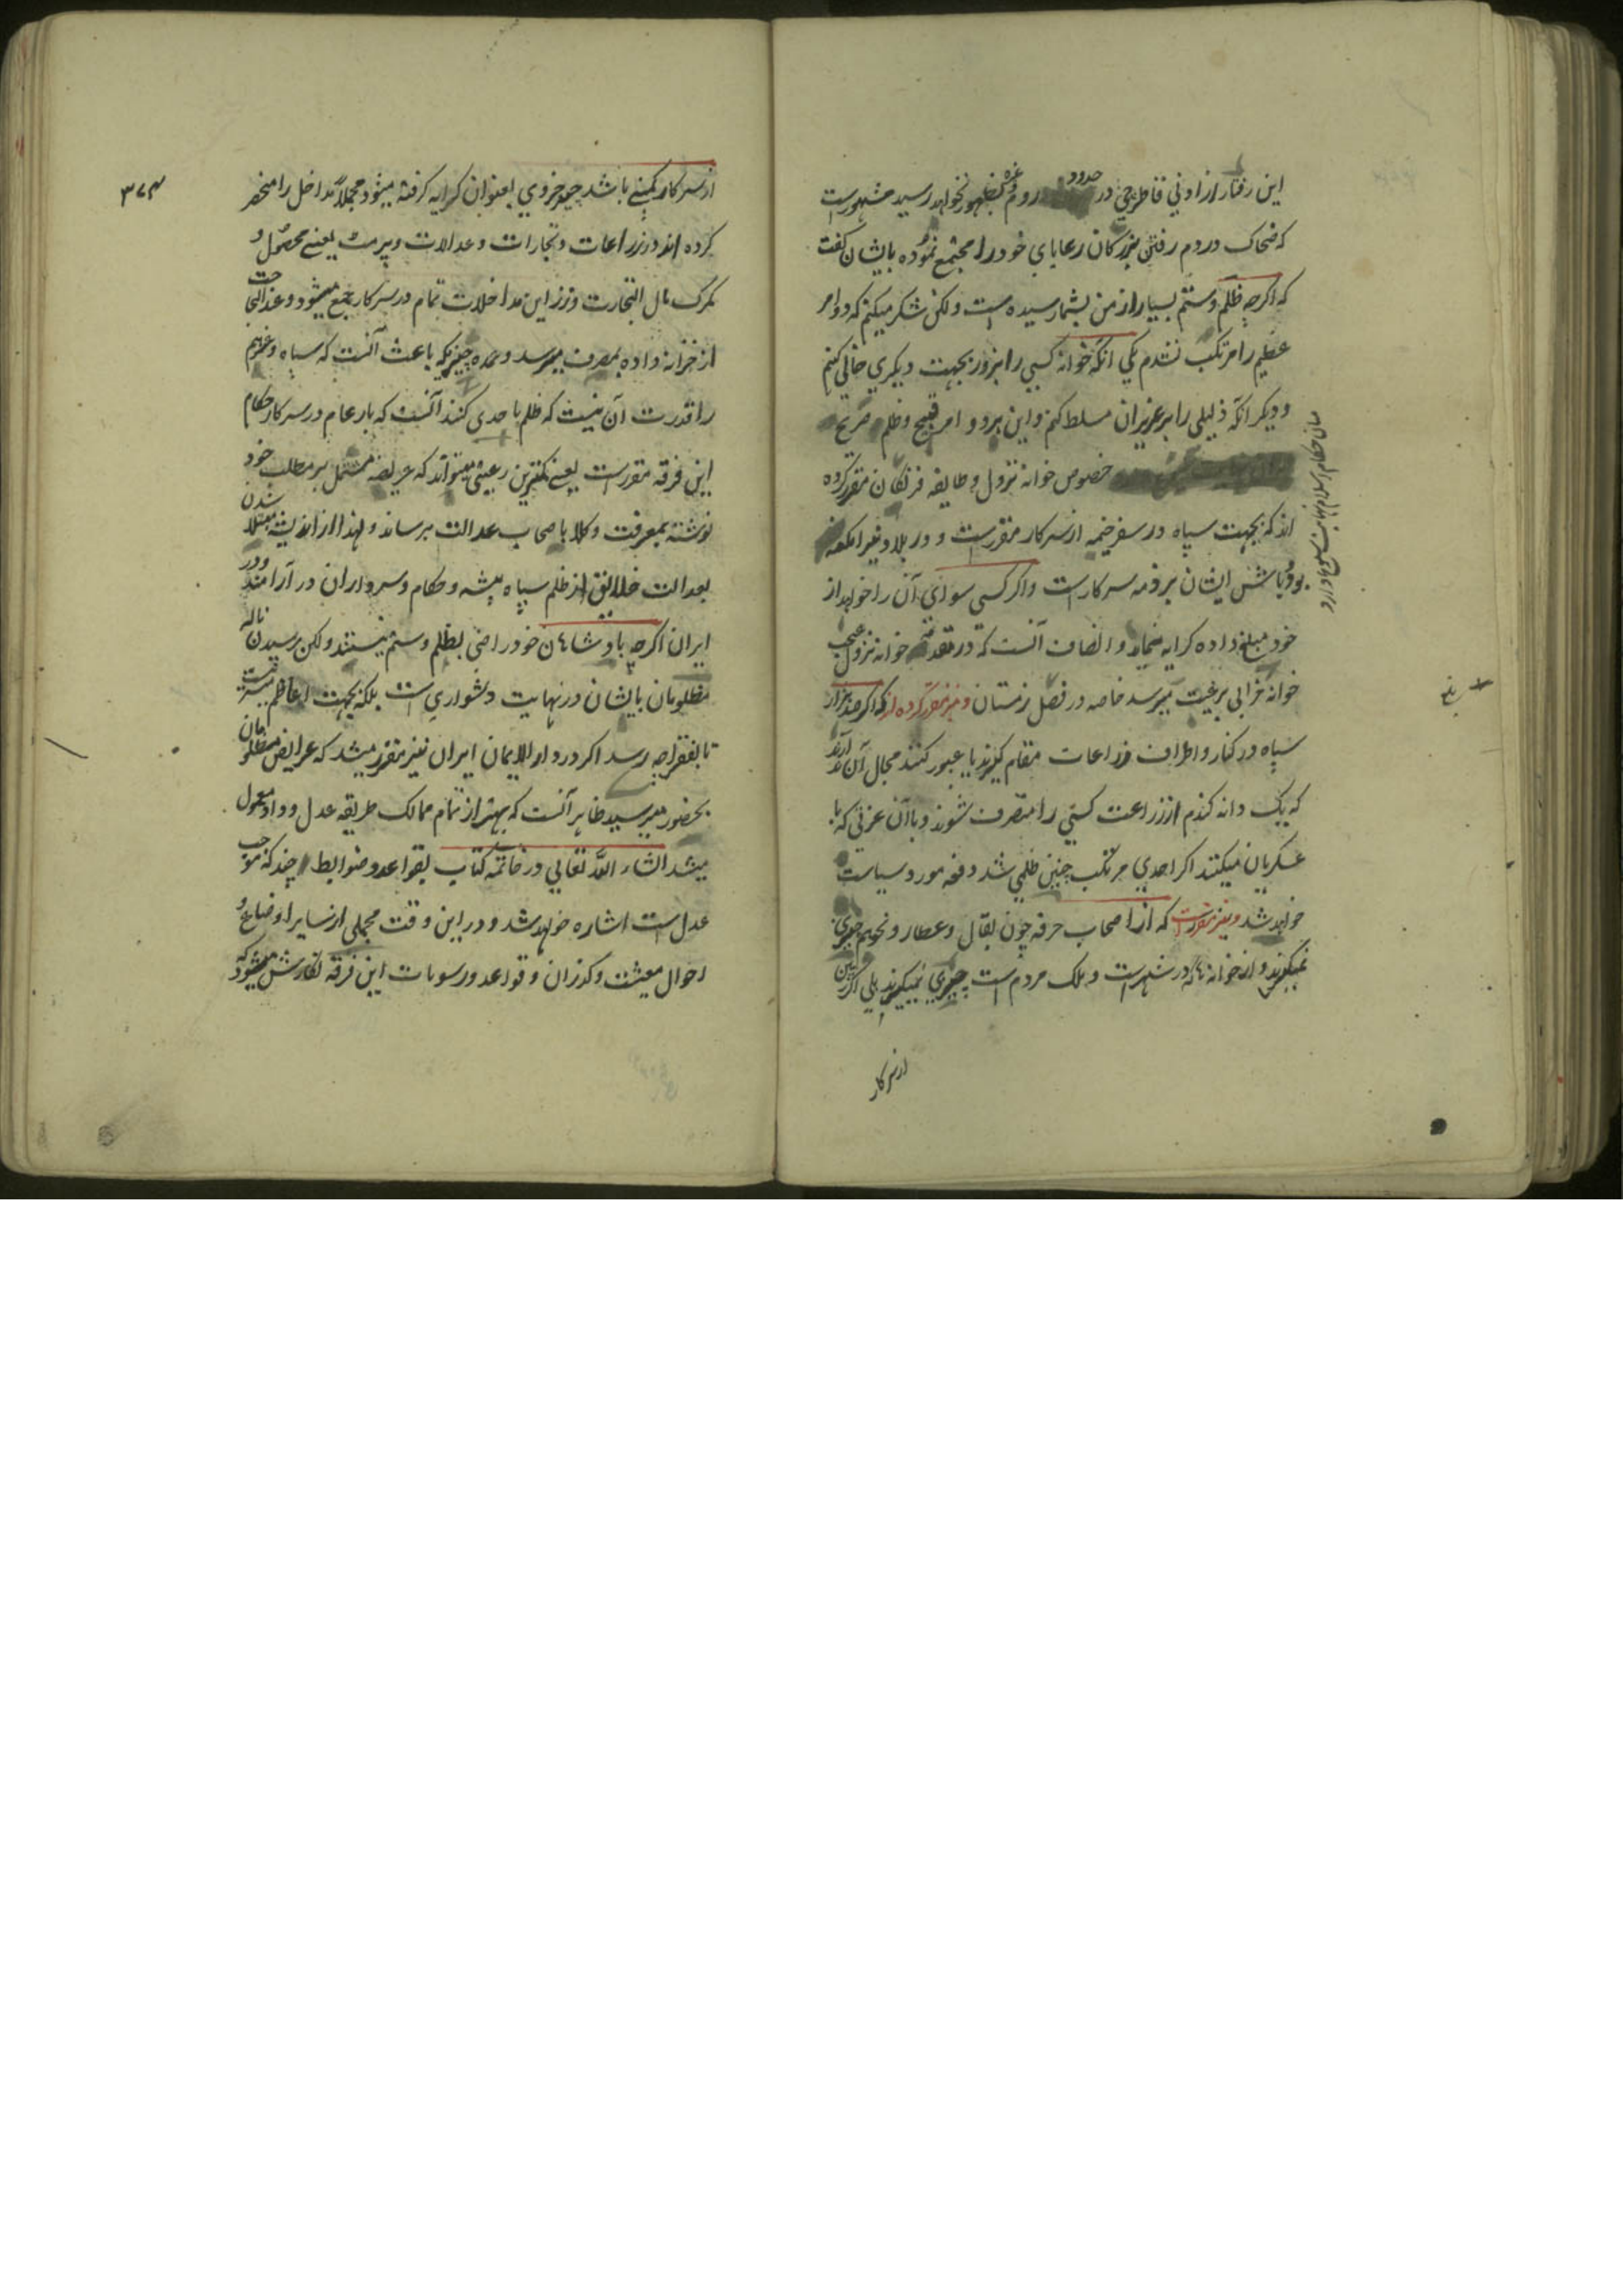 این رفتار از ادنی قاطرچی در حدود روم وغیره بظهور نخواهد رسید مشهورست
که ضحاک در دم رفتن بزرکان رعایای خود را مجتمع نموده بایشان کفت
که اکرچه ظلم وستم بسیار از من بشمار سیده است ولکن شکر میکنم که دو امر
عظیم را مرتکب نشدم یکی آنکه خوانه کسی را بزور بجهت دیکری خالی کنم
و دیکر آنکه ذلیلی را بر عزیزان مسلط کنم و این هر دو امر قبیح وظلم صریح
خصوص خوانه نزول و طایفه فرنکان مقرر کرده
اند که بجهت سپاه در سفر خیمه از سرکار مقررست و در بلاد وغیر امکنه
بود وباش ایشان بر ذمه سرکارست واکر کسی سوای آن را خواهد از
خود مبلغ داده کرایه نماید و انصاف آنست که در مقدمه خوانه نزول
خوانه خرابی برعیت میرسد خاصه در فصل زمستان و نیز مقرر کرده اند که اکر صد هزار
سپاه در کنار و اطراف زراعات مقام کیرند یا عبور کنند مجال آن ندارند
که یک دانه کندم از زراعت کسی را متصرف شوند و باآن عزتی که با
عسکریان میکنند اکر احدی مرتکب چنین ظلمی شد دفعه مورد سیاست
خواهد شد و نیز مقررست که از اصحاب حرفه چون بقال وعطار ونحوهم چیزی
نمیکیرند و از خوانه ها که در شهرست و ملک مردم است چیزی نمیکیرند بلی اکر زمین
از سرکار
۳۷۴
از سرکار کمپنی باشد چیز جزوی بعنوان کرایه کرفته میشود مجملاً مداخل را منحصر
کرده اند در زراعات وتجارات وعدالات وپرمت یعنی محصول و
کمرک مال التجارت وزر این مداخلات تمام در سرکار جمع میشود وعند الحاجت
از خزانه داده بمصرف میرسد وعمده چیزیکه باعث آنست که سپاه وغیرهم
را قدرت آن نیست که ظلم باحدی کنند آنست که بار عام در سرکار حکام
این فرقه مقررست یعنی کمترین رعیتی میتواند که عریضه مشتمل بر مطلب خود
نوشته بمعرفت وکلا باصحاب عدالت برساند و لهذا از اذیت مبتلا شدن
بعدالت خلائق از ظلم سپاه پیشه وحکام وسرداران در آرامند ودر
ایران اکرچه پادشاهان خود راضی بظلم وستم نیستند ولکن رسیدن ناله
مظلومان بایشان در نهایت دشواری است بلکه بجهت اعاظم میسر نیست
تا بفقرا چه رسد اکر در دار الایمان ایران نیز مقرر میشد که عرایض مظلومان
بحضور میرسید ظاهر آنست که بهتر از تمام ممالک طریقه عدل و داد معمول
میشد انشاء الله تعالی در خاتمه کتاب بقواعد وضوابط چند که موجب
عدل است اشاره خواهد شد و در این وقت مجملی از سایر اوضاع و
احوال معیشت وکذران وقواعد ورسومات این فرقه نکارش میشود که